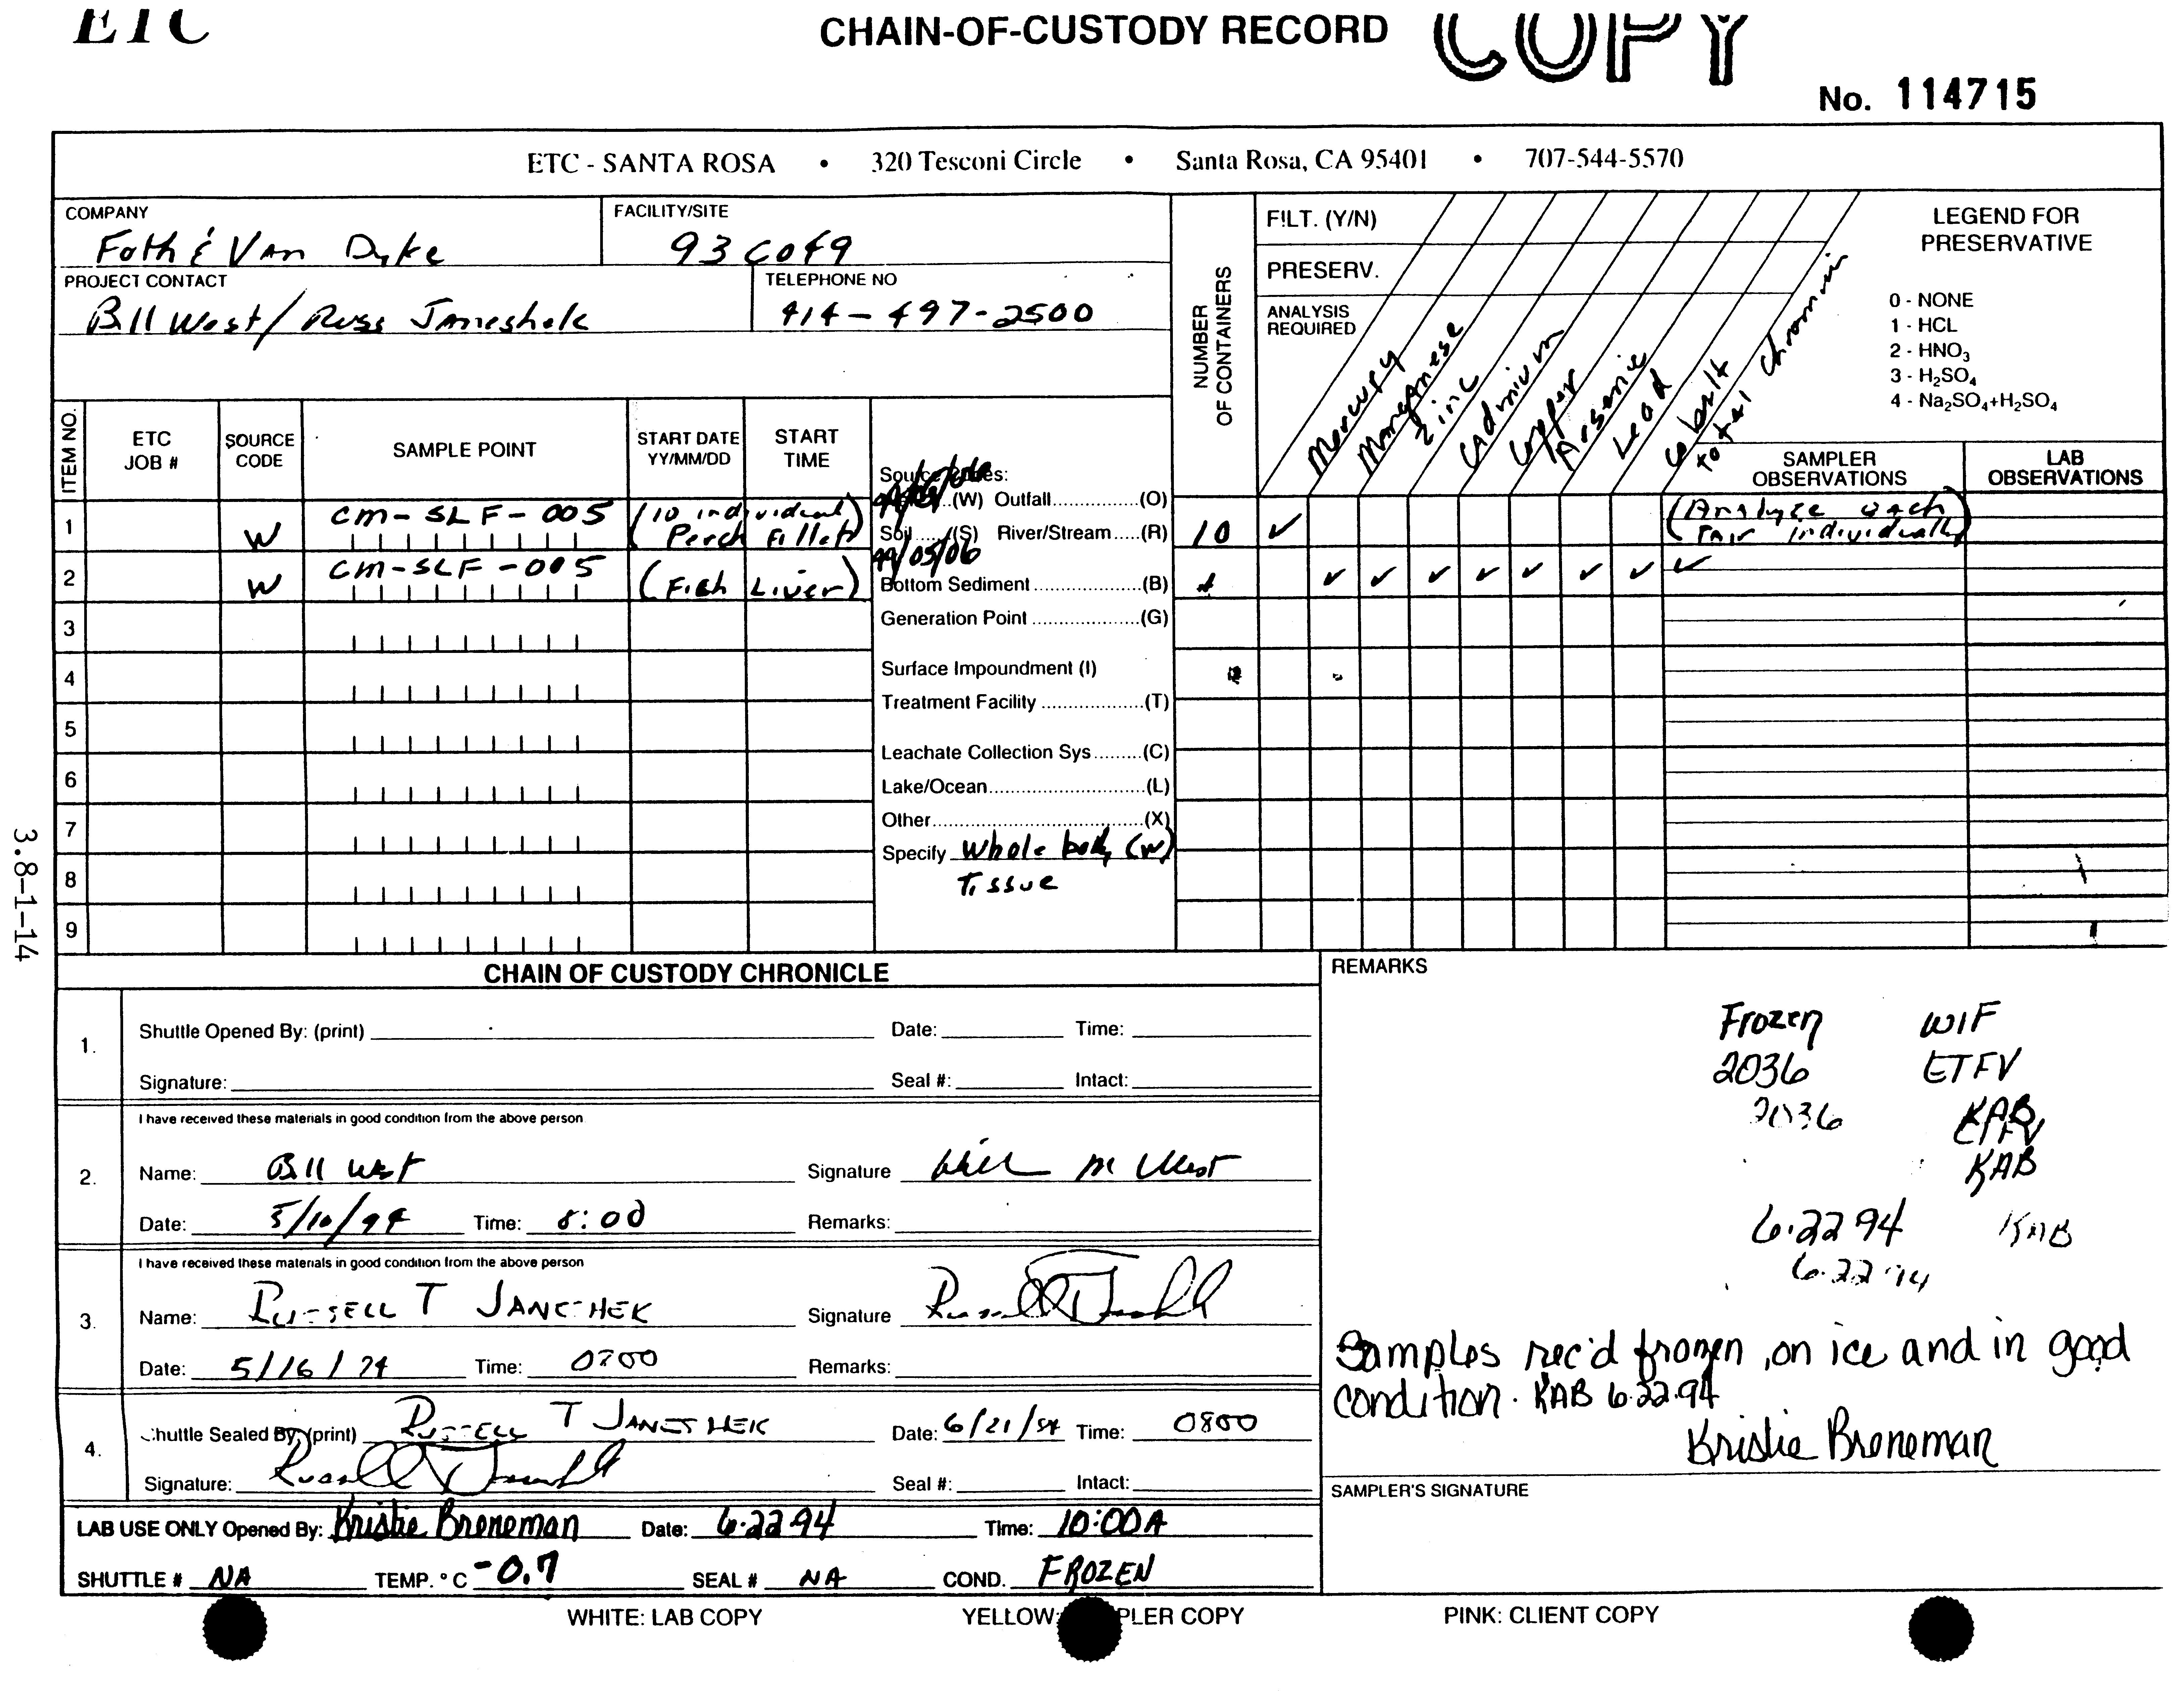 ETC
CHAIN-OF-CUSTODY RECORD
COPY
No. 114715
ETC - SANTA ROSA • 320 Tesconi Circle • Santa Rosa, CA 95401 • 707-544-5570
COMPANY
Foth & Van Dyke
FACILITY/SITE
93C049
PROJECT CONTACT
Bill West/Russ Janeshek
TELEPHONE NO
414-497-2500
NUMBER OF CONTAINERS
FILT. (Y/N)
PRESERV.
ANALYSIS REQUIRED
Mercury
Manganese
Zinc
Cadmium
Copper
Arsenic
Lead
Cobalt
total chromium
LEGEND FOR
PRESERVATIVE
0 - NONE
1 - HCL
2 - HNO3
3 - H2SO4
4 - Na2SO4+H2SO4
ITEM NO.
ETC JOB #
SOURCE CODE
SAMPLE POINT
START DATE YY/MM/DD
START TIME
SAMPLER OBSERVATIONS
LAB OBSERVATIONS
1 W CM-SLF-005 (10 individual Perch fillets) 10 ✓ (Analyze each Pair individually)
2 W CM-SLF-005 (Fish Liver) 94/05/06 ✓ ✓ ✓ ✓ ✓ ✓ ✓ ✓
3
4
5
6
7
8
9
(W) Outfall (O)
Soil (S) River/Stream (R)
Bottom Sediment (B)
Generation Point (G)
Surface Impoundment (I)
Treatment Facility (T)
Leachate Collection Sys (C)
Lake/Ocean (L)
Other (X)
Specify Whole body (W)
Tissue
3.8-1-14
CHAIN OF CUSTODY CHRONICLE
1. Shuttle Opened By: (print) Date: Time:
Signature: Seal #: Intact:
I have received these materials in good condition from the above person
2. Name: Bill West Signature Will M West
Date: 5/10/94 Time: 8:00 Remarks:
I have received these materials in good condition from the above person
3. Name: RUSSELL T JANESHEK Signature
Date: 5/16/94 Time: Remarks:
4. Shuttle Sealed By: (print) RUSSELL T JANESHEK Date: 6/21/94 Time: 0800
Signature: Seal #: Intact:
LAB USE ONLY Opened By: Kristie Breneman Date: 6.22.94 Time: 10:00A
SHUTTLE # NA TEMP. °C -0.7 SEAL # NA COND. FROZEN
REMARKS
Frozen WIF
2036 ETFV
2036 KAB
ETFV
KAB
6.22.94 KAB
6.22.94
Samples rec'd frozen, on ice and in good
condition. KAB 6.22.94
Kristie Breneman
SAMPLER'S SIGNATURE
WHITE: LAB COPY YELLOW: PLER COPY PINK: CLIENT COPY